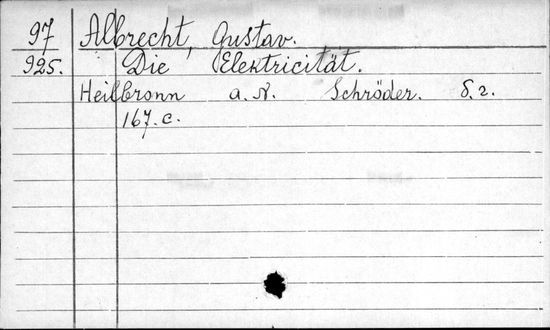 97 Albrecht, Gustav.
925. Die Elektricität.
Heilbronn a. N. Schröder. б.г.
167. с.